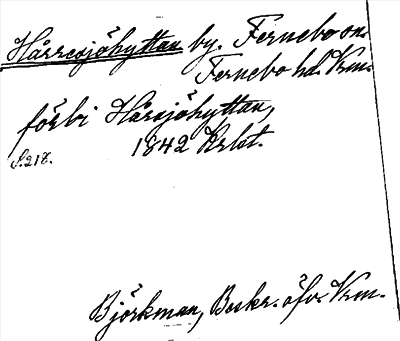 Hårresjöhyttan by. Fernebo sn.
Fernebo hd. Vrm.
förbi Håresjöhyttan,
S.218. 1842 Krlst.
Björkman, Beskr. öfv. Vrm.